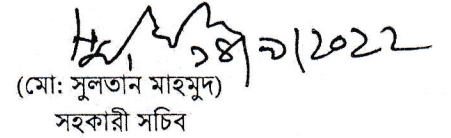 ২৪/৩/2022
(মো: সুলতান মাহমুদ)
সহকারী সচিব